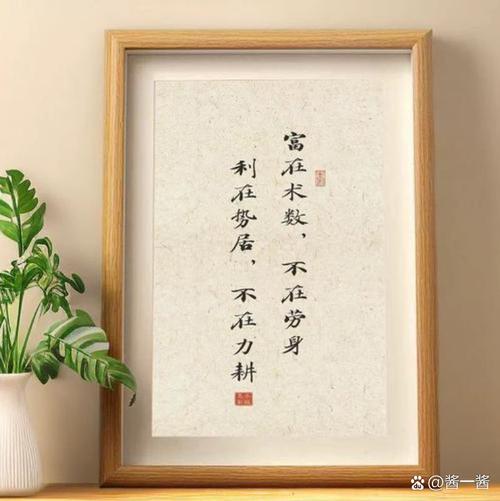 富在术数，不在劳身
利在势居，不在力耕
酱一酱